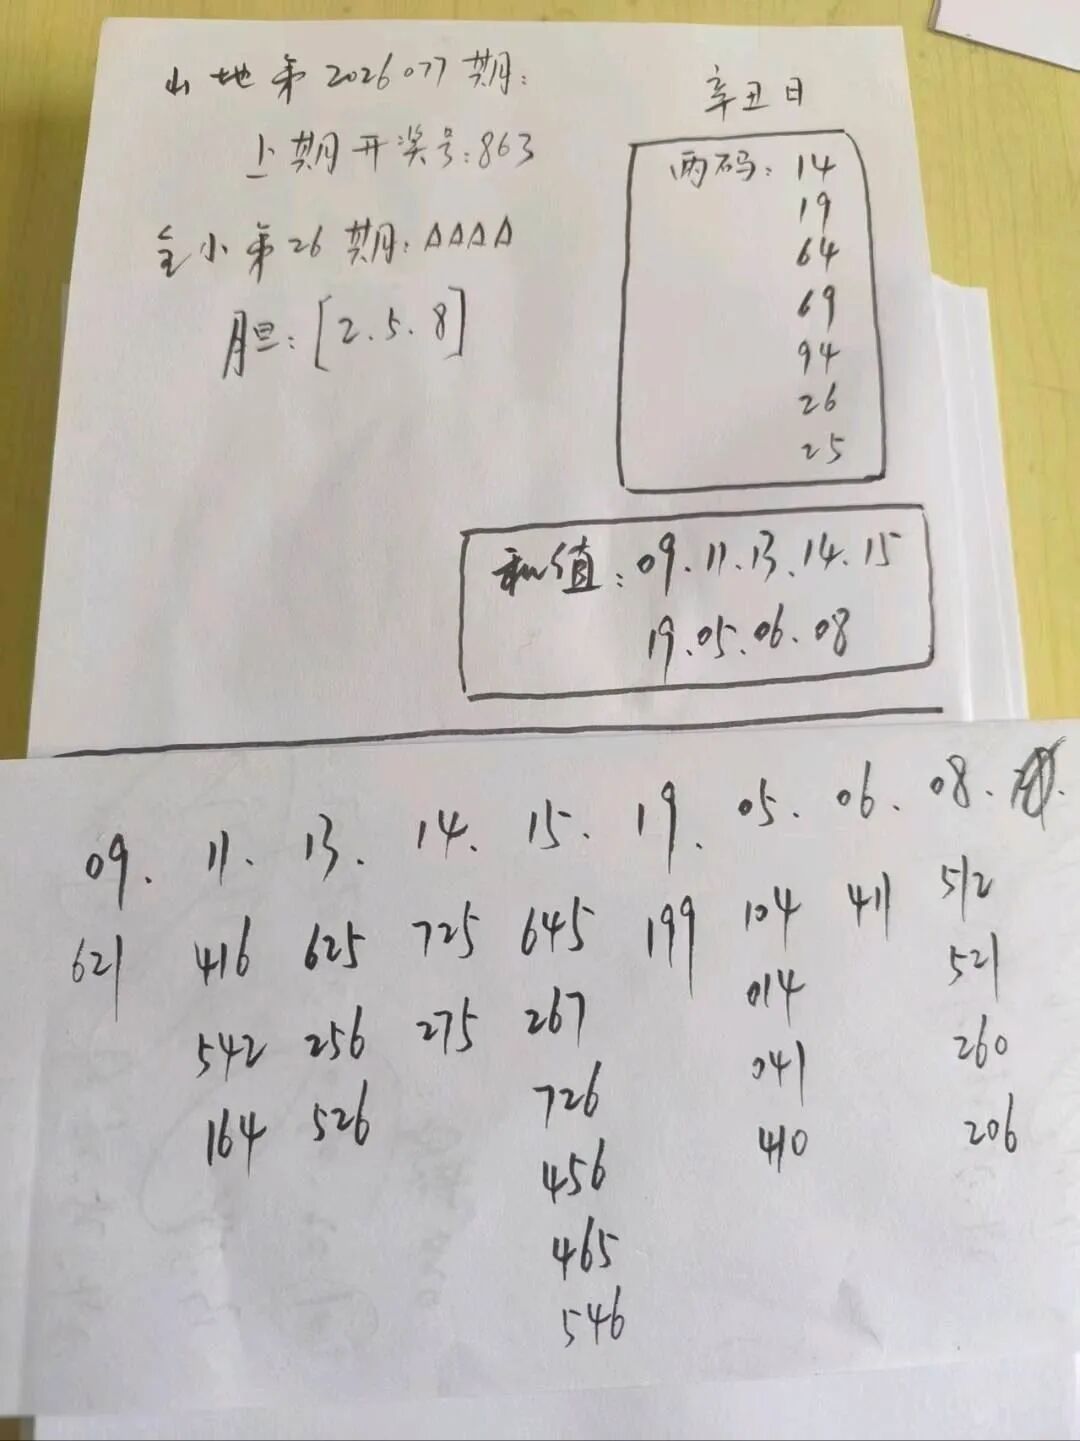 山地第2026077期:
上期开奖号:863
全小第26期:ΔΔΔΔ
胆:[2.5.8]
辛丑日
两码:14
19
64
69
94
26
25
和值:09.11.13.14.15
19.05.06.08
09. 11. 13. 14. 15. 19. 05. 06. 08.
621 416 625 725 645 199 104 411 512
542 256 275 267 014 521
164 526 726 041 260
456 410 206
465
546